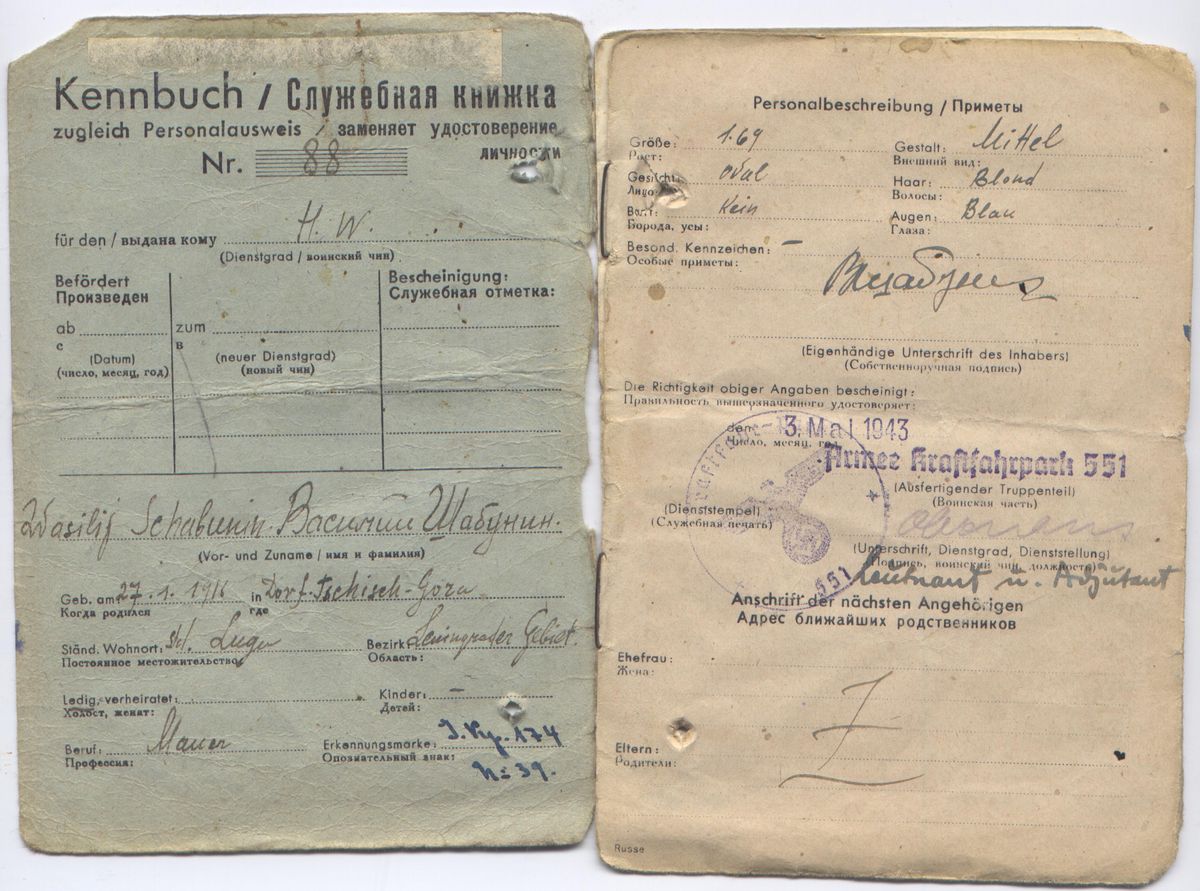 Kennbuch / Служебная книжка
zugleich Personalausweis / заменяет удостоверение
личности
Nr. 88
für den / выдана кому H. W.
(Dienstgrad / воинский чин)
Befördert
Произведен
Bescheinigung:
Служебная отметка:
ab
с
zum
в
(Datum)
(число, месяц, год)
(neuer Dienstgrad)
(новый чин)
Wasilij Schabunin. Василий Шабунин.
(Vor- und Zuname / имя и фамилия)
Geb. am 27. 1. 1916 in Dorf. Tschisch-Gora
Когда родился где
Ständ. Wohnort: Bezirk: Leningrader Gebiet.
Постоянное местожительство Область:
Ledig, verheiratet: Kinder: –
Холост, женат: Детей:
Beruf: Erkennungsmarke:
Профессия: Опознательный знак:
174
N= 39.
Personalbeschreibung / Приметы
Größe: 1.69 Gestalt: Mittel
Рост: Внешний вид:
Gesicht: Oval Haar: Blond
Лицо: Волосы:
Bart: Kein Augen: Blau
Борода, усы: Глаза:
Besond. Kennzeichen: –
Особые приметы:
(Eigenhändige Unterschrift des Inhabers)
(Собственноручная подпись)
Die Richtigkeit obiger Angaben bescheinigt:
Правильность вышеозначенного удостоверяет:
den -3. Mai 1943
Число, месяц, год
Armee Kraftfahrpark 551
(Ausfertigender Truppenteil)
(Воинская часть)
(Dienststempel)
(Служебная печать)
551
(Unterschrift, Dienstgrad, Dienststellung)
(Подпись, воинский чин, должность)
Leutnant u. Adjutant
Anschrift der nächsten Angehörigen
Адрес ближайших родственников
Ehefrau:
Жена:
Eltern:
Родители:
Russe